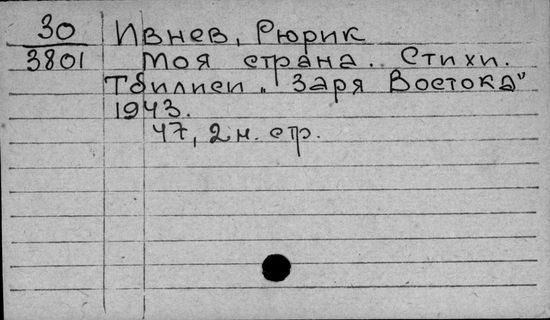 30 Ивнев, Рюрик
3801 Моя страна. Стихи.
Тбилиси, "Заря Востока"
1943.
47, 2 н. стр.